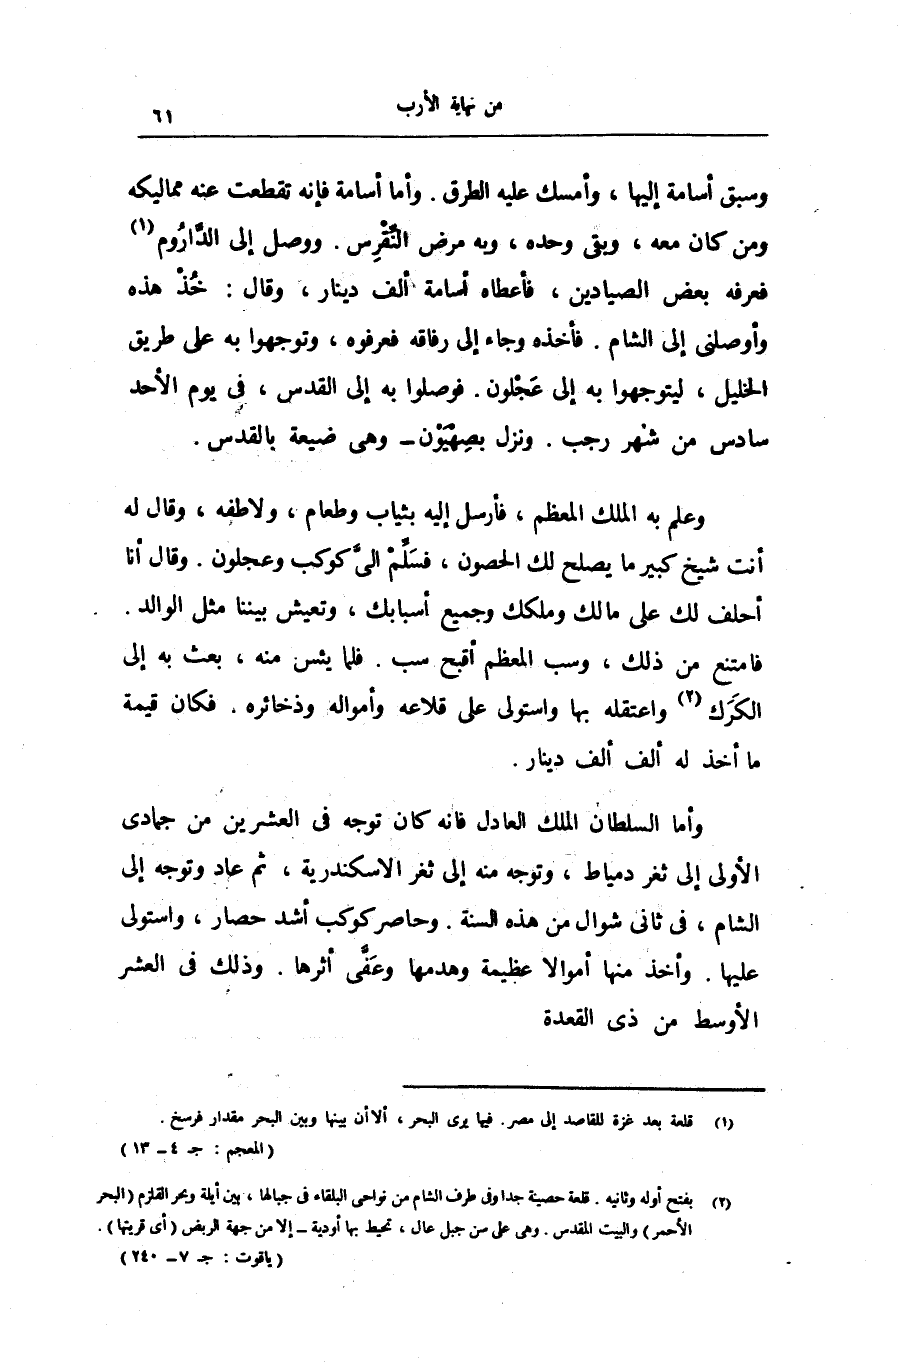 من نهاية الأرب
٦١
وسبق أسامة إليها ، وأمسك عليه الطرق . وأما أسامة فإنه تقطعت عنه مماليكه
ومن كان معه ، وبقى وحده ، وبه مرض النُّقْرِس . ووصل إلى الدَّارُوم (١)
فعرفه بعض الصيادين ، فأعطاه أسامة ألف دينار ، وقال : خُذْ هذه
وأوصلنى إلى الشام . فأخذه وجاء إلى رفاقه فعرفوه ، وتوجهوا به على طريق
الخليل ، ليتوجهوا به إلى عَجْلون . فوصلوا به إلى القدس ، فى يوم الأحد
سادس من شهر رجب . ونزل بصِهْيَوْن ــ وهى ضيعة بالقدس .
وعلم به الملك المعظم ، فأرسل إليه بثياب وطعام ، ولاطفه ، وقال له
أنت شيخ كبير ما يصلح لك الحصون ، فسَلِّمْ الىَّ كوكب وعجلون . وقال أنا
أحلف لك على مالك وملكك وجميع أسبابك ، وتعيش بيننا مثل الوالد .
فامتنع من ذلك ، وسب المعظم أقبح سب . فلما يئس منه ، بعث به إلى
الكَرَك (٢) واعتقله بها واستولى على قلاعه وأمواله وذخائره . فكان قيمة
ما أخذ له ألف ألف دينار .
وأما السلطان الملك العادل فانه كان توجه فى العشرين من جمادى
الأولى إلى ثغر دمياط ، وتوجه منه إلى ثغر الاسكندرية ، ثم عاد وتوجه إلى
الشام ، فى ثانى شوال من هذه السنة . وحاصر كوكب أشد حصار ، واستولى
عليها . وأخذ منها أموالا عظيمة وهدمها وعَفَّى أثرها . وذلك فى العشر
الأوسط من ذى القعدة
(١) قلعة بعد غزة للقاصد إلى مصر. فيها يرى البحر ، ألا أن بينها وبين البحر مقدار فرسخ .
( المعجم : جـ ٤ ــ ١٣ )
(٢) بفتح أوله وثانيه . قلعة حصينة جدا وفى طرف الشام من نواحى البلقاء فى جبالها ، بين أيلة وبحر القلزم ( البحر
الأحمر ) والبيت المقدس . وهى على سن جبل عال ، تحيط بها أودية ــ إلا من جهة الربض ( أى قريتها ) .
( ياقوت : جـ ٧ ــ ٢٤٠ )